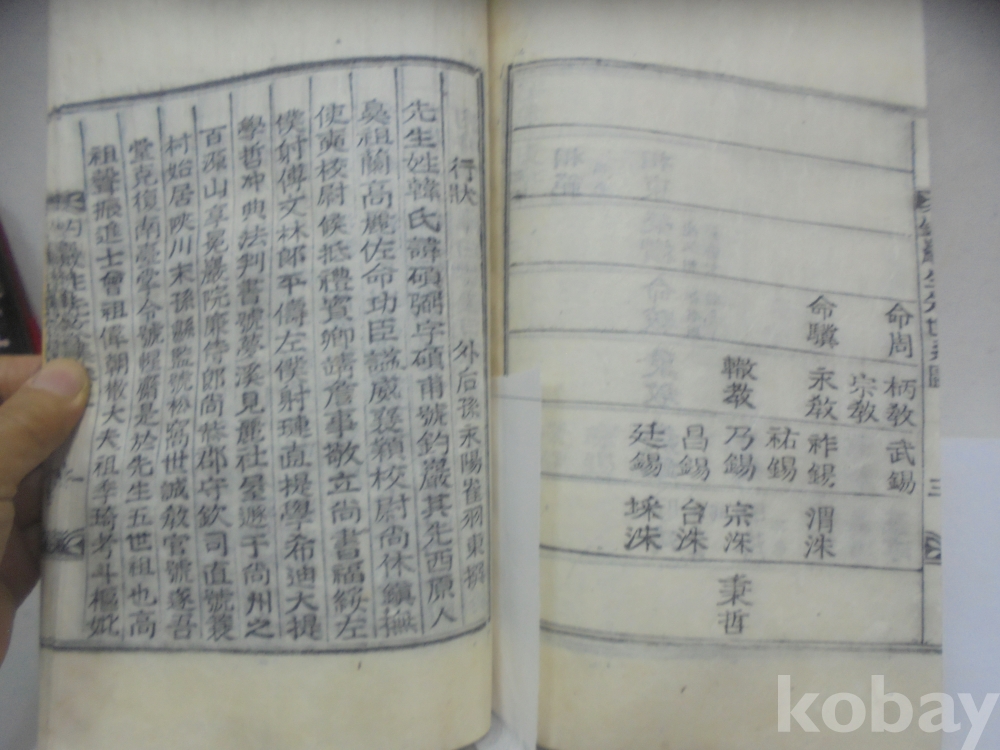 命周 柄教 武錫
宗教
命驥 永教 祚錫 渭洙
祐錫
轍教 乃錫 宗洙 秉哲
昌錫 台洙
廷錫 埰洙
行狀 外后孫永陽崔羽東撰
先生姓韓氏諱碩弼字碩甫號釣巖其先西原人
鼻祖蘭高麗佐命功臣諡威襄穎校尉尚休鎭撫
使奭校尉候抵禮賓卿靖詹事敬立尚書福綏左
僕射傅文林郎平儔左僕射璉直提學希迪大提
學哲冲典法判書號夢溪見麗社屋遯于尚州之
百源山享冕巖院廉侍郎尚恭郡守欽司直號篌
村始居陜川末孫縣監號松窩世誠教官號遂吾
堂克復南臺掌令號經齋是於先生五世祖也高
祖聲振進士曾祖偉朝散大夫祖季琦考斗樞妣
kobay